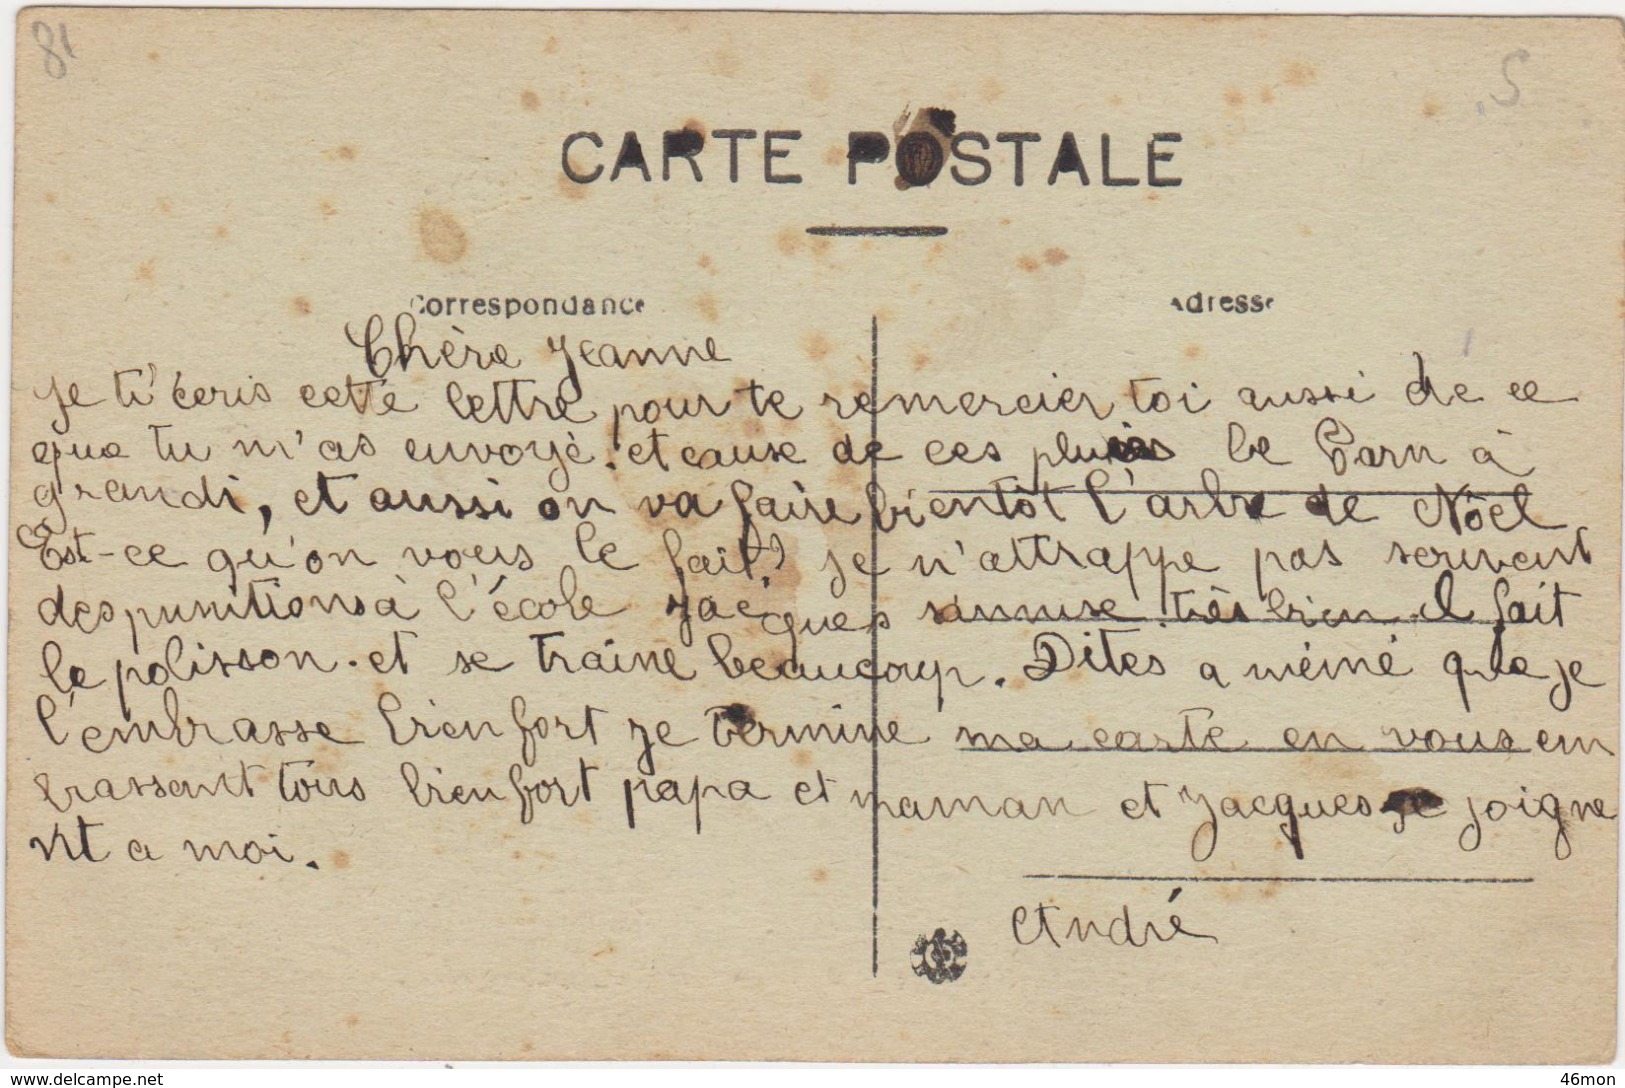 81
5
CARTE POSTALE
Correspondance
Adresse
Chère Jeanne
je t'écris cette lettre pour te remercier toi aussi de ce
que tu m'as envoyé. et cause de ces pluies le Tarn à
grandi, et aussi on va faire bientôt l'arbre de Nöel
Est-ce qu'on vous le fait? je n'attrappe pas souvent
des punitions à l'école Jacques s'amuse très bien il fait
le polisson. et se traine beaucoup. Dites a mémé que je
l'embrasse bien fort je termine ma carte en vous em
brassant tous bien fort papa et maman et Jacques se joigne
nt a moi.
André
www.delcampe.net
46mon